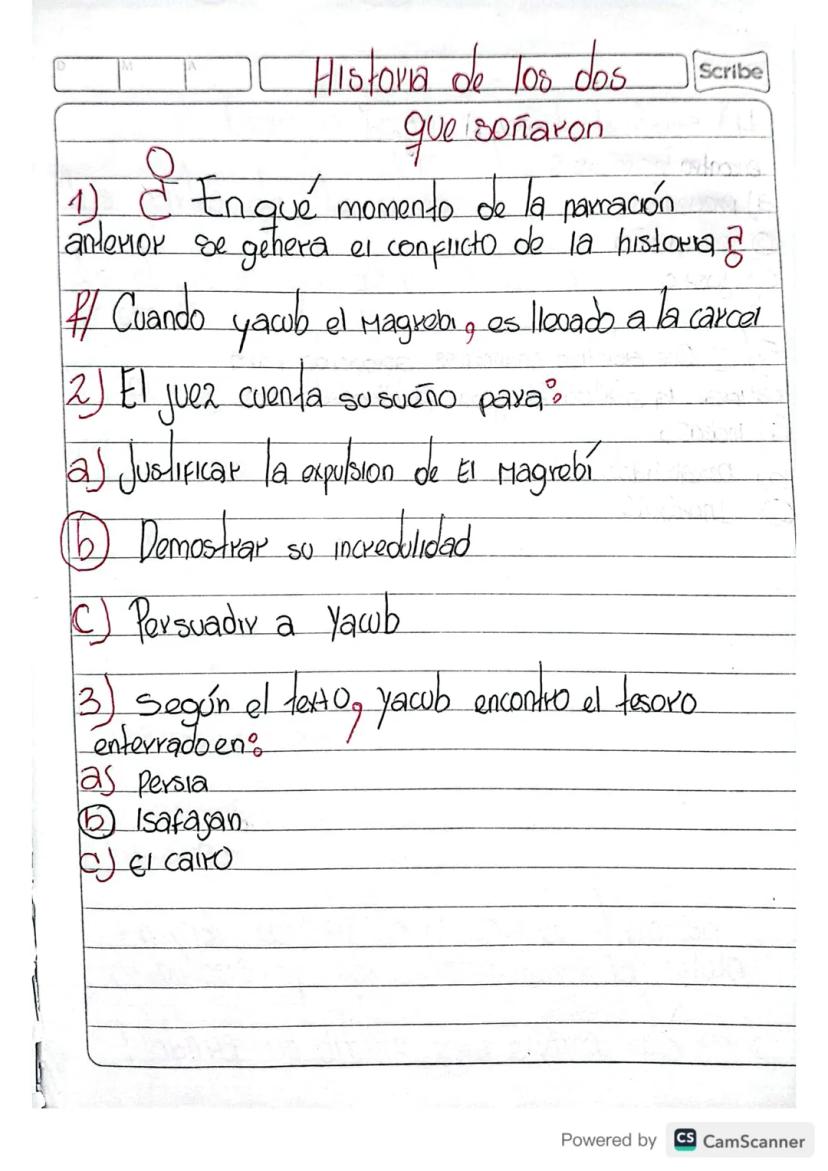 D M A Historia de los dos Scribe
que soñaron
1) ¿ En qué momento de la parración
anterior se genera el conflicto de la historia?
R/ Cuando yacub el Magrebi, es llevado a la carcel
2) El juez cuenta su sueño para:
a) Justificar la expulsion de El Magrebí
b) Demostrar su incredulidad
c) Persuadir a Yacub
3) Según el texto, yacub encontro el tesoro
enterrado en:
a) Persia
b) Isafagan
c) El cairo
Powered by CS CamScanner